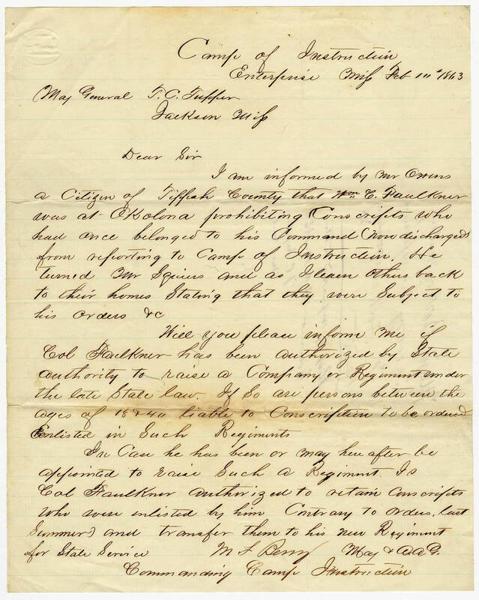 Camp of Instruction
Enterprise Miss Feb 14th 1863
Maj General T. C. Tupper
Jackson Miss
Dear Sir
I am informed by Mr
a Citizen of Tippah County that Wm C. Faulkner
was at Okolona prohibiting Conscripts who
had once belonged to his Command (Now discharged)
from reporting to Camp of Instruction. He
turned Mr Squires and as I learn others back
to their homes Stating that they were Subject to
his orders &c
Will you please inform me if
Col Faulkner has been authorized by State
authority to raise a Company or Regiment under
the late State law. If So are persons between the
ages of 18 & 40 liable to Conscription to be ordered
Enlisted in Such Regiments
In Case he has been or may here after be
appointed to raise Such a Regiment Is
Col Faulkner authorized to retain conscripts
who were enlisted by him Contrary to orders, last
Summer) and transfer them to his new Regiment
for State Service
M F Berry Maj & AAG.
Commanding Camp Instruction